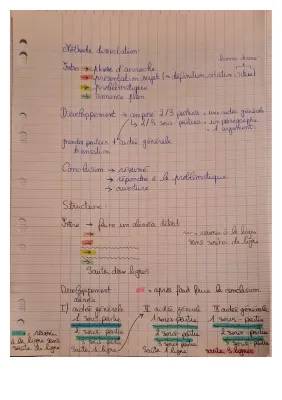 Méthode dissertation
Intro → phrase d'accroche
→ présentation sujet (= définition, citation, idée)
→ problématique
→ annonce plan
Développement → compose 2/3 parties = une idée générale
→ 2/3 sous parties = un paragraphe
= 1 argument
grandes parties 1 idée générale
transition
Conclusion → résumé
→ répondre à la problématique
→ ouverture
Structure
Intro → faire un alinéa début
= revenir à la ligne
sans sauter de ligne
Saute deux lignes
Développement
= après fait faire la conclusion
alinéa
I) idée générale II idée générale III idée générale
1 sous-partie 1 sous-partie 1 sous-partie
2 sous-partie 2 sous-partie 2 sous-partie
3 sous-partie 3 sous-partie 3 sous-partie
Saute 1 ligne Saute 1 ligne saute 2 lignes
= revenir
à la ligne sans
saute de ligne